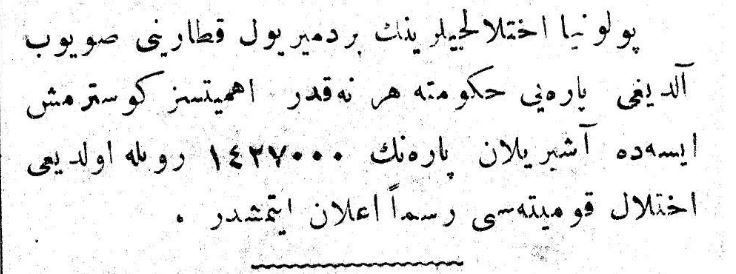 پولونیا اختلالجیلرینك بر دمیریول قطارینی صویوب
آلدیغی پاره‌یی حکومته هر نه‌قدر اهمیتسز کوسترمش
ایسه‌ده آشیریلان پاره‌نك ١٤٢٧٠٠٠ روبله اولدیغی
اختلال قومیته‌سی رسماً اعلان ایتمشدر .